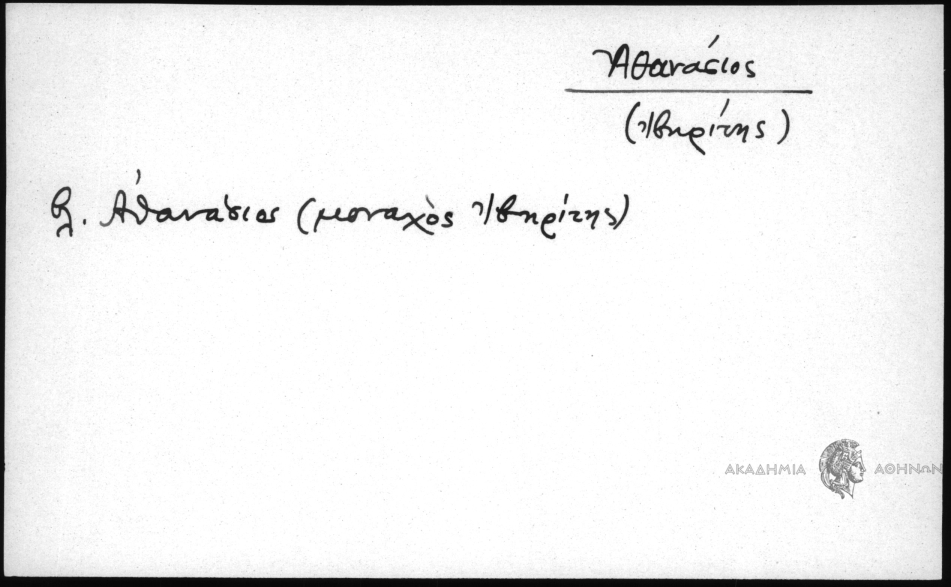 Ἀθανάσιος
(Ἰβηρίτης)
βλ. Ἀθανάσιος (μοναχὸς Ἰβηρίτης)
ΑΚΑΔΗΜΙΑ ΑΘΗΝΩΝ